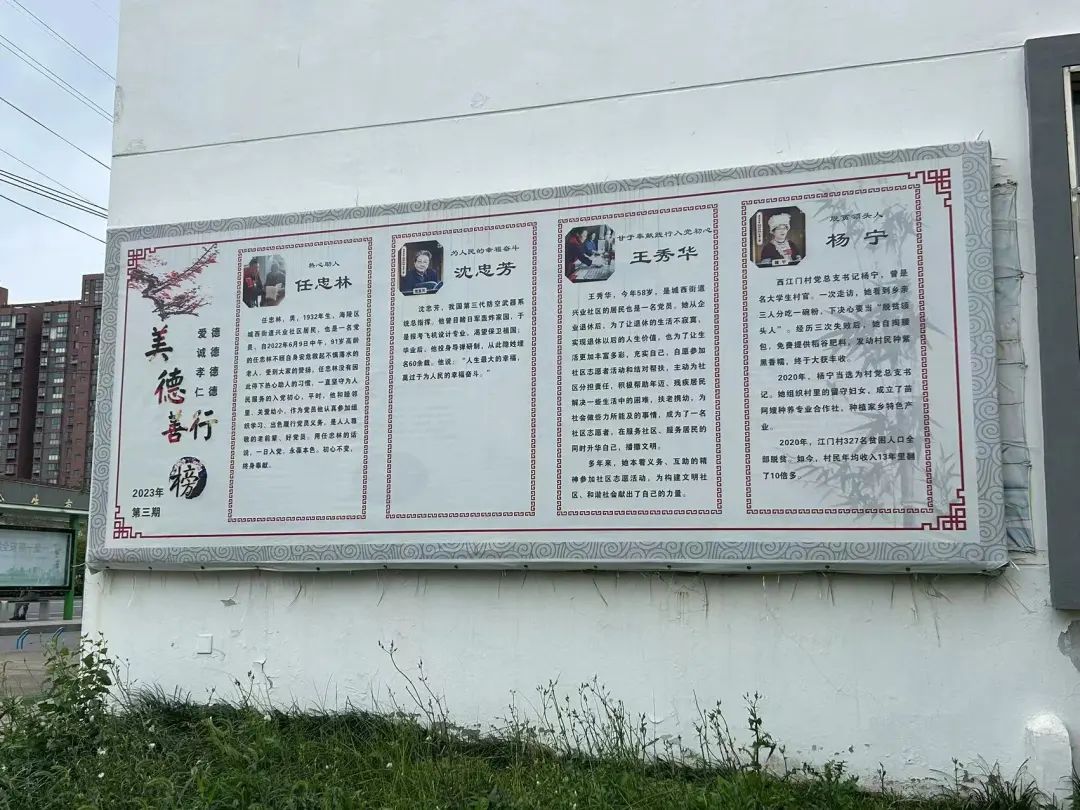 美德善行
榜
爱德
诚德
孝德
仁德
2023年
第三期
热心助人
任忠林
任忠林，男，1932年生，海陵区
城西街道兴业社区居民，也是一名党
员。自2022年6月9日中午，91岁高龄
的任忠林不顾自身安危救起不慎落水的
老人，受到大家的赞扬。任忠林没有因
此停下热心助人的习惯，一直坚守为人
民服务的入党初心。平时，他和睦邻
里、关爱幼小，作为党员他认真参加组
织学习、出色履行党员义务，是人人尊
敬的老前辈、好党员。用任忠林的话
说，一日入党，永葆本色。初心不变，
终身奉献。
为人民的幸福奋斗
沈忠芳
沈忠芳，我国第三代防空武器系
统总指挥。他曾目睹日军轰炸家园，于
是报考飞机设计专业，渴望保卫祖国；
毕业后，他投身导弹研制，从此隐姓埋
名60余载。他说：“人生最大的幸福，
莫过于为人民的幸福奋斗。”
甘于奉献践行入党初心
王秀华
王秀华，今年58岁，是城西街道
兴业社区的居民也是一名党员，她从企
业退休后，为了让退休的生活不寂寞，
实现退休以后的人生价值，也为了让生
活更加丰富多彩，充实自己，自愿参加
社区志愿者活动和结对帮扶，主动为社
区分担责任，积极帮助年迈、残疾居民
解决一些生活中的困难，扶老携幼，为
社会做些力所能及的事情，成为了一名
社区志愿者，在服务社区、服务居民的
同时升华自己，播撒文明。
多年来，她本着义务、互助的精
神参加社区志愿活动，为构建文明社
区、和谐社会献出了自己的力量。
脱贫领头人
杨宁
西江门村党总支书记杨宁，曾是
名大学生村官。一次走访，她看到乡亲
三人分吃一碗粉，下决心要当“脱贫领
头人”。经历三次失败后，她自掏腰
包，免费提供稻谷肥料，发动村民种紫
黑香糯，终于大获丰收。
2020年，杨宁当选为村党总支书
记。她组织村里的留守妇女，成立了苗
阿嫂种养专业合作社，种植家乡特色产
业。
2020年，江门村327名贫困人口全
部脱贫。如今，村民年均收入13年里翻
了10倍多。